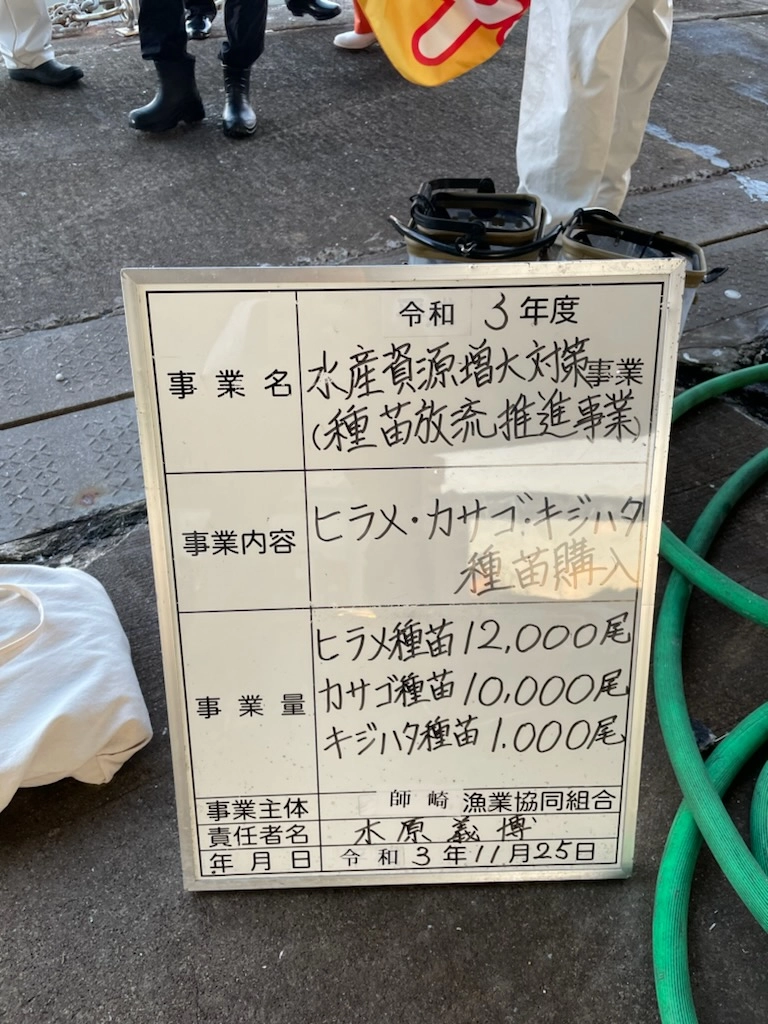 令和 3年度
事業名 水産資源増大対策事業
(種苗放流推進事業)
事業内容 ヒラメ・カサゴ・キジハタ
種苗購入
ヒラメ種苗12,000尾
事業量 カサゴ種苗10,000尾
キジハタ種苗1.000尾
事業主体 師崎 漁業協同組合
責任者名 水原義博
年月日 令和3年11月25日